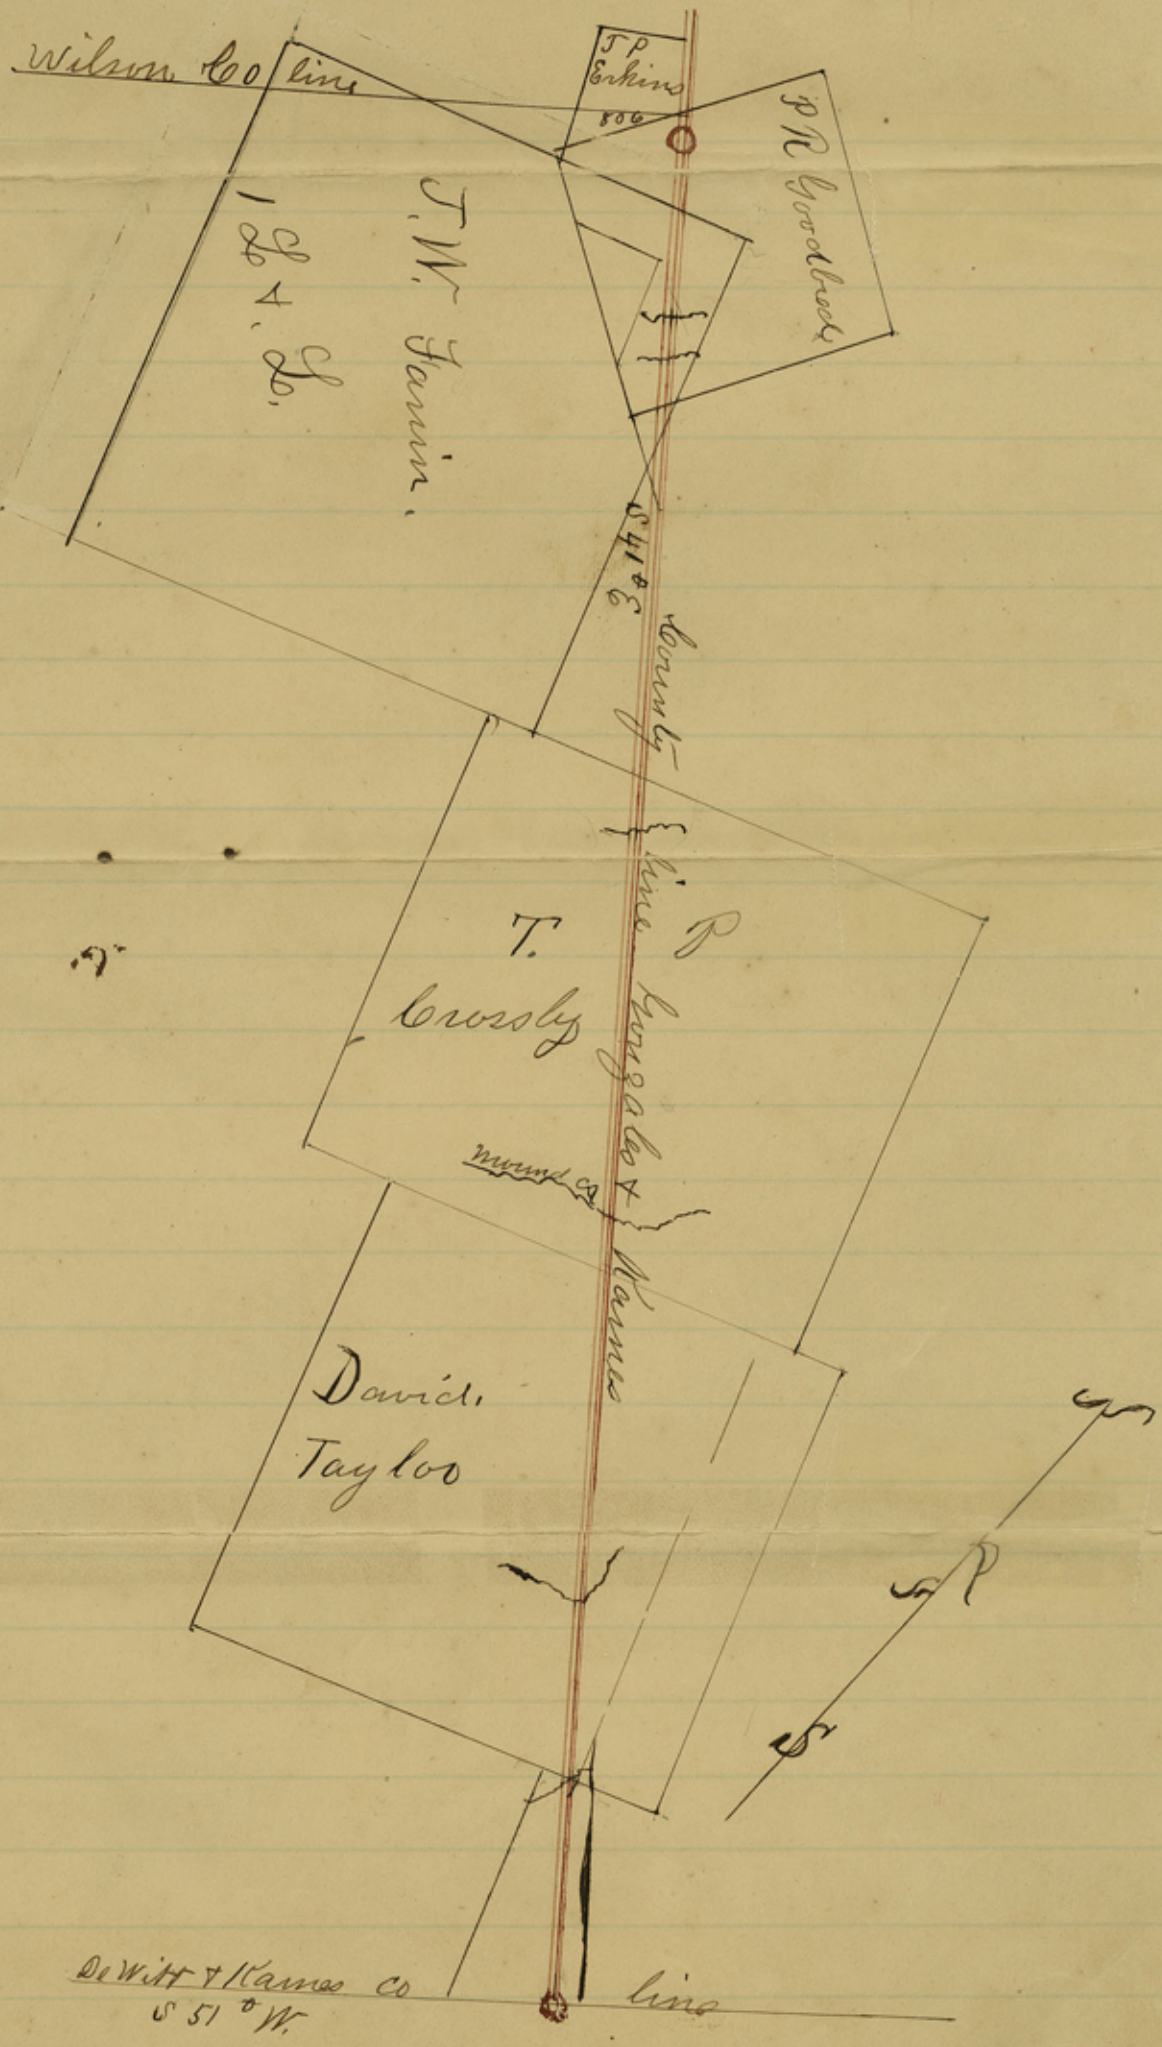 Wilson Co line
J P
Erkins
806
P R Goodbred
J. W. Fanin.
1 L & L.
S 41° E
County line Gonzales & Karnes
T. P
Crosby
Mound cr
David.
Taylor
S
P
S
S
DeWitt & Karnes co line
S 51° W.